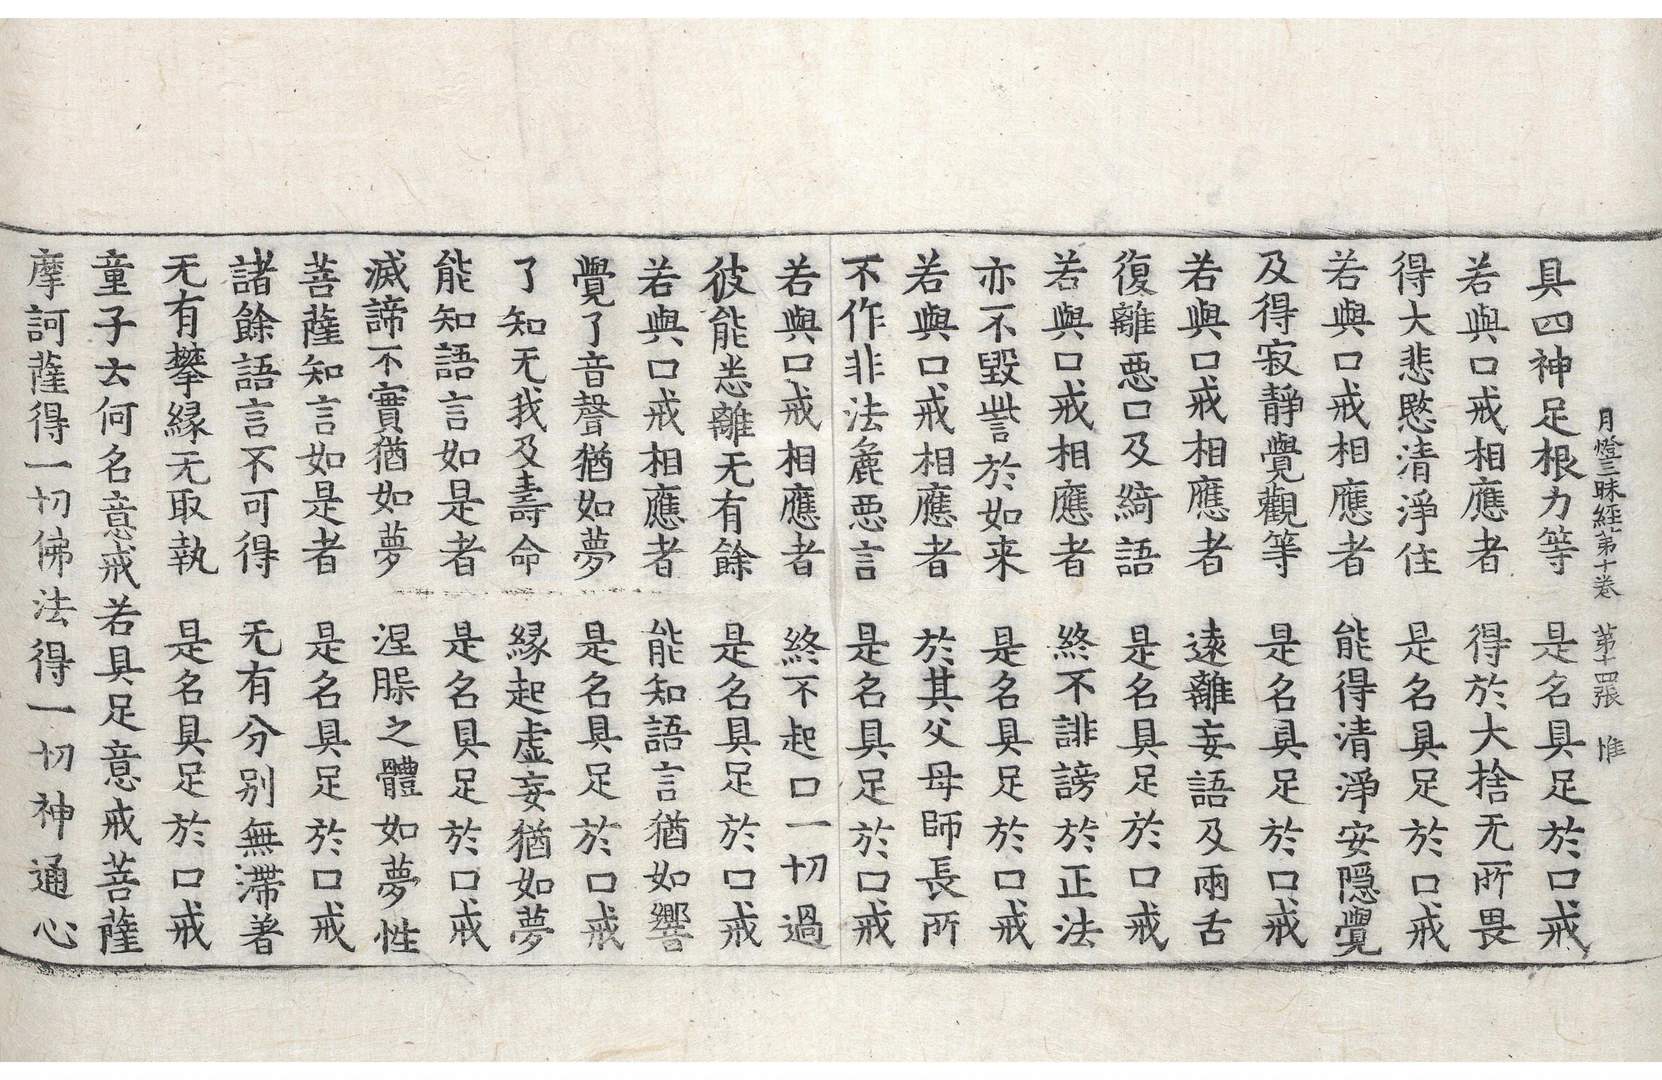 月燈三昧経第十卷　第十四張　惟
具四神足根力等　是名具足於口戒
若與口戒相應者　得於大捨无所畏
得大悲愍清淨住　是名具足於口戒
若與口戒相應者　能得清淨安隠覺
及得寂靜覺觀等　是名具足於口戒
若與口戒相應者　遠離妄語及兩舌
復離惡口及綺語　是名具足於口戒
若與口戒相應者　終不誹謗於正法
亦不毀訾於如来　是名具足於口戒
若與口戒相應者　於其父母師長所
不作非法麁惡言　是名具足於口戒
若與口戒相應者　終不起口一切過
彼能悉離无有餘　是名具足於口戒
若與口戒相應者　能知語言猶如響
覺了音聲猶如夢　是名具足於口戒
了知无我及壽命　緣起虛妄猶如夢
能知語言如是者　是名具足於口戒
滅諦不實猶如夢　涅槃之體如夢性
菩薩知言如是者　是名具足於口戒
諸餘語言不可得　无有分別無滯著
无有攀緣无取執　是名具足於口戒
童子云何名意戒若具足意戒菩薩
摩訶薩得一切佛法得一切神通心